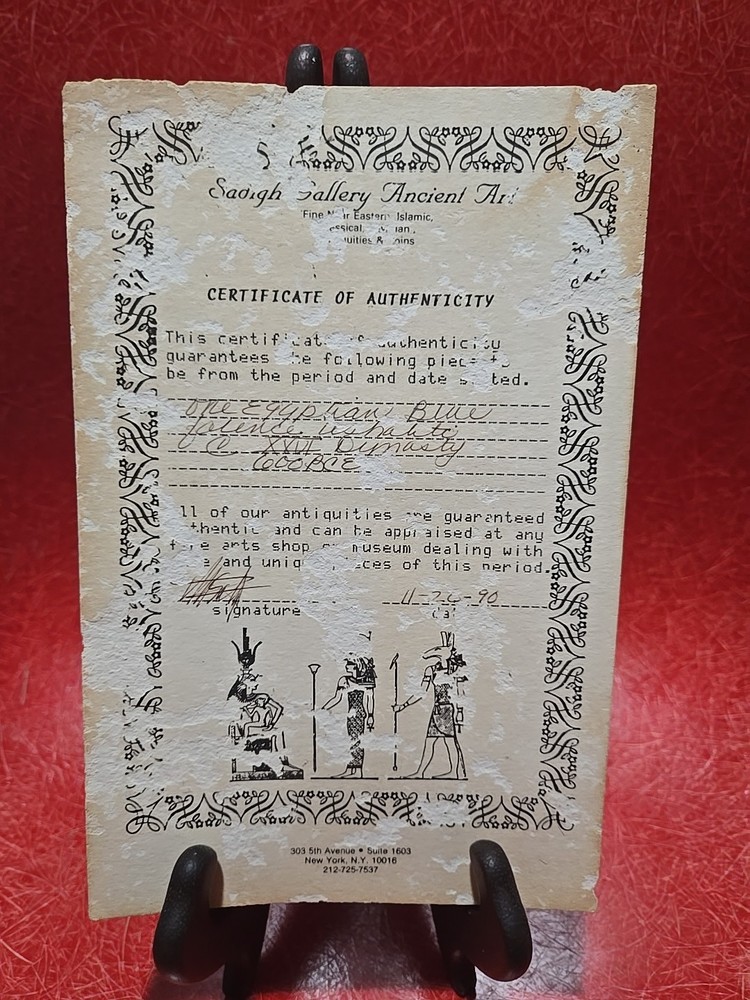 Sadigh Gallery Ancient Art
Fine Near Eastern, Islamic,
& Coins
CERTIFICATE OF AUTHENTICITY
This certificate of authenticity
guarantees the following piece to
be from the period and date stated.
One Egyptian Blue
faience ushabti
XXVI Dynasty
600 BCE
All of our antiquities are guaranteed
authentic and can be appraised at any
fine arts shop or museum dealing with
and unique pieces of this period.
11-26-90
signature
303 5th Avenue • Suite 1603
New York, N.Y. 10016
212-725-7537